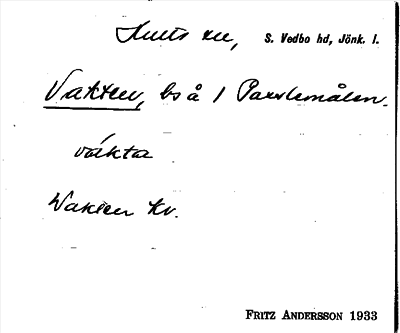 Hults sn, S. Vedbo hd, Jönk. l.
Vakten, bs å 1 Parslemålen.
våkta
Wakten kv.
FRITZ ANDERSSON 1933